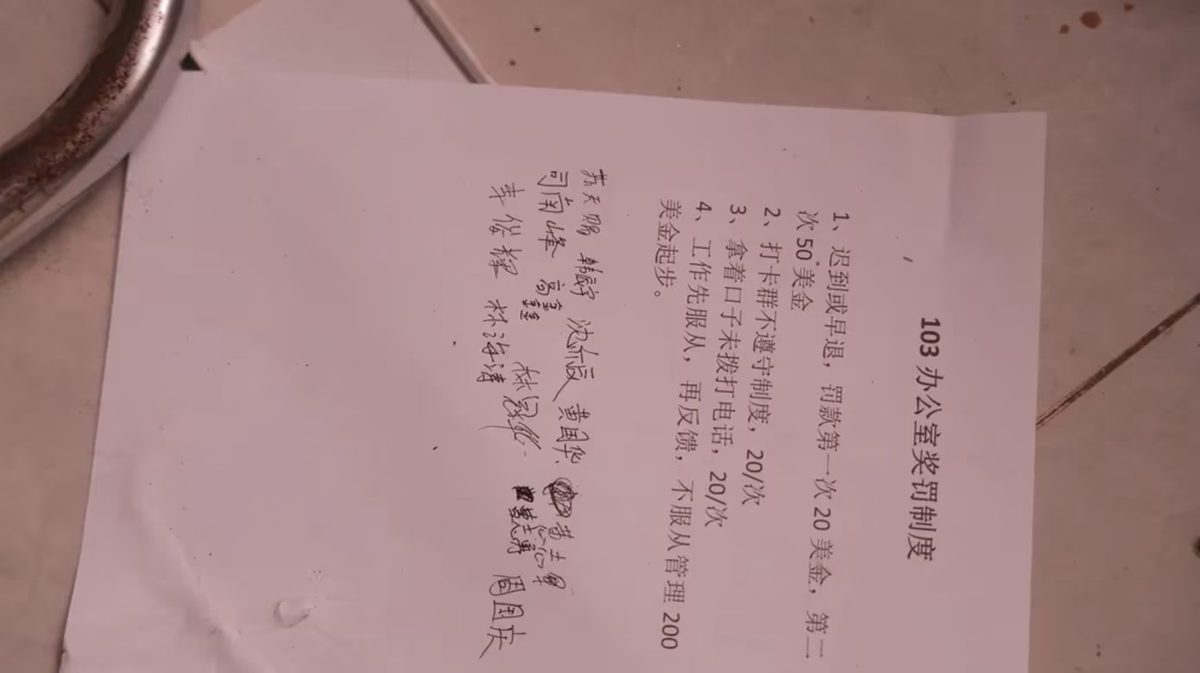 103 办公室奖罚制度
1、迟到或早退，罚款第一次 20 美金，第二
次 50 美金
2、打卡群不遵守制度，20/次
3、拿着口子未拨打电话，20/次
4、工作先服从，再反馈，不服从管理 200
美金起步。
苏天赐 沈 黄国华 黄士军
司南峰 高鑫 林冠华
李俊辉 林海涛 周国庆